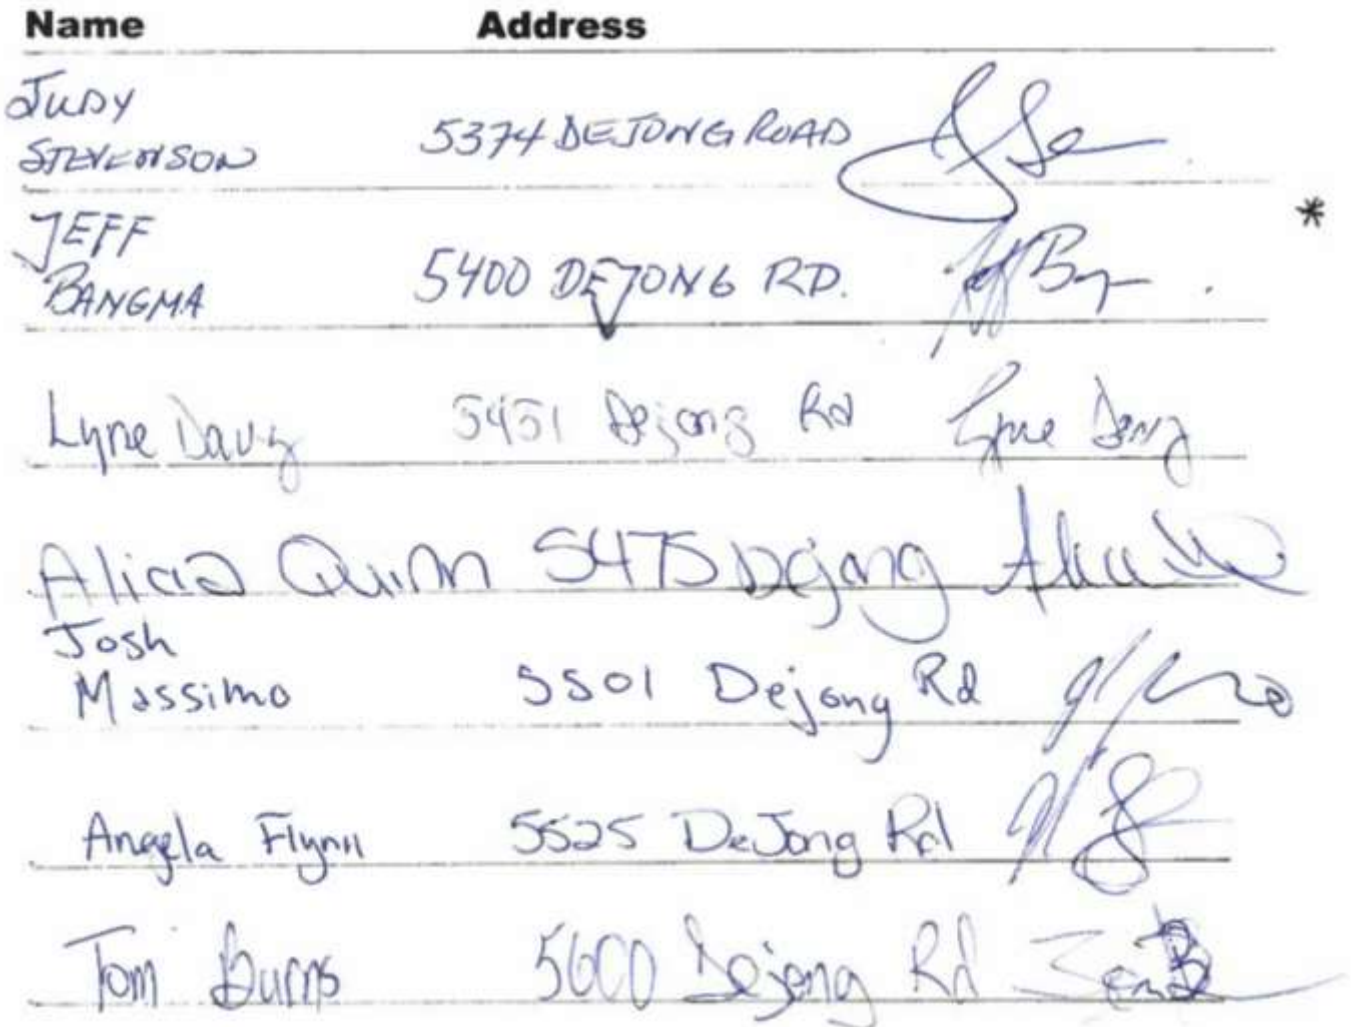 Name Address
JUDY
STEVENSON 5374 DEJONG ROAD
*
JEFF
BANGMA 5400 DEJONG RD.
Lyne 5451 Dejong Rd Lyne
Alicia Quinn 5475 Dejong
Josh
Massimo 5501 Dejong Rd
Angela Flynn 5525 DeJong Rd
Tom Burns 5600 Dejong Rd